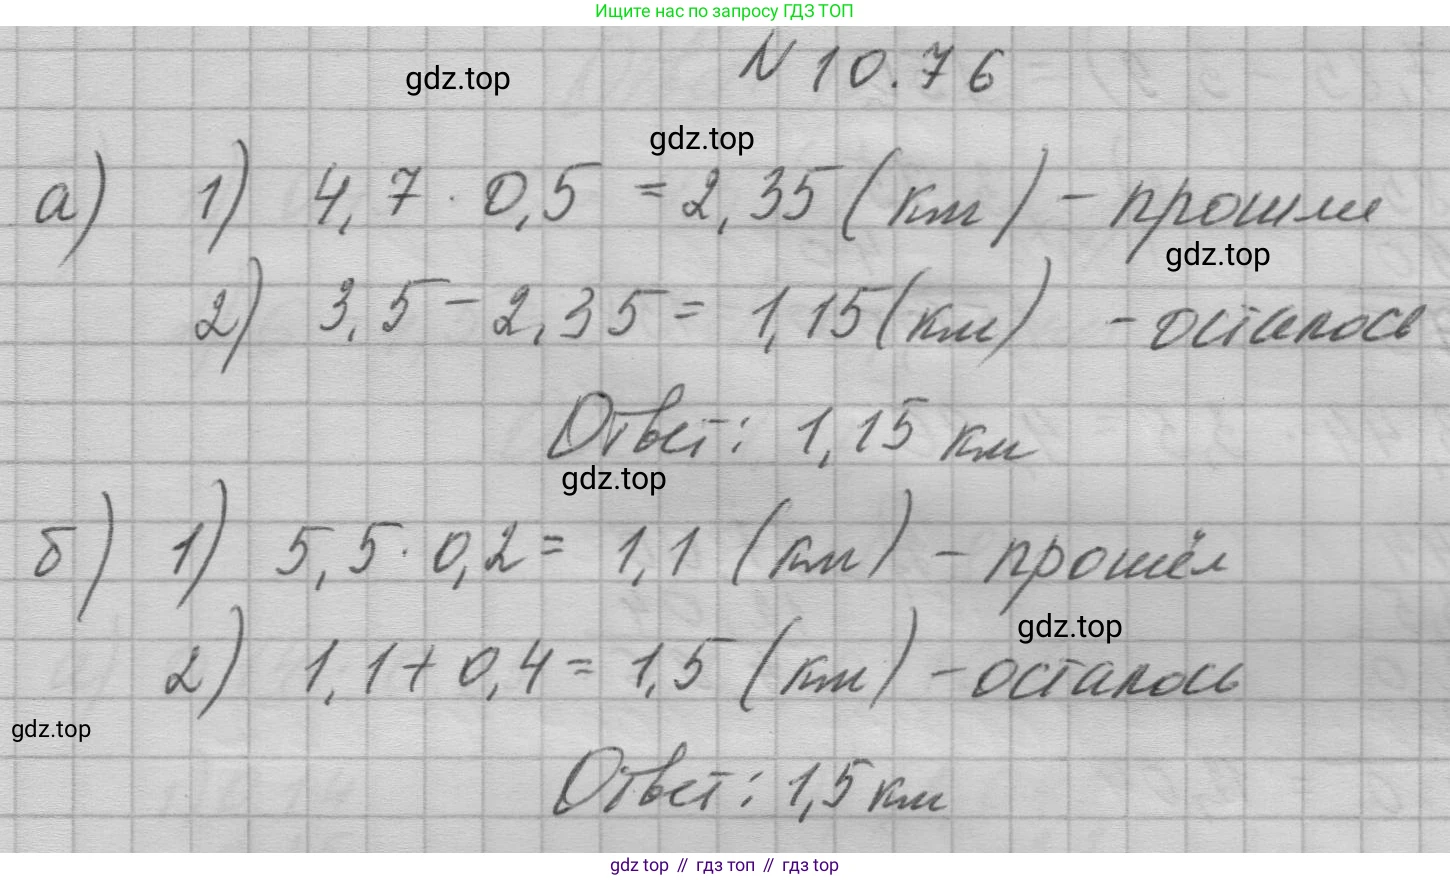 Ищите нас по запросу ГДЗ ТОП
N 10.76
gdz.top
gdz.top
а) 1) 4,7 · 0,5 = 2,35 (км) - прошли
gdz.top
2) 3,5 - 2,35 = 1,15 (км) - осталось
Ответ: 1,15 км
gdz.top
б) 1) 5,5 · 0,2 = 1,1 (км) - прошёл
gdz.top
2) 1,1 + 0,4 = 1,5 (км) - осталось
gdz.top
Ответ: 1,5 км
gdz top // гдз топ // гдз top